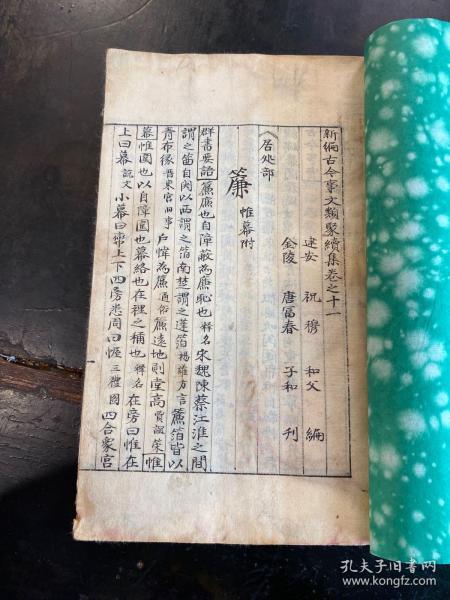 新編古今事文類聚續集卷之十一
建安 祝穆 和父 編
金陵 唐富春 子和 刊
居处部
簾 帷幕附
群書要語 簾廉也自障蔽為廉恥也釋名宋魏陳蔡江淮之間
謂之箔自関以西謂之箔南楚謂之蓬箔楊雄方言簾箔皆以
青布緣晋東宮旧事户幃為簾通俗簾遠地則堂高賈誼策 惟
幕帷圍也以自障圍也幕絡也在裡之稱也釋名在旁曰帷在
上曰幕說文小幕曰帟上下四旁悉周曰幄三禮圖四合象宮
孔夫子旧书网
book.kongfz.com